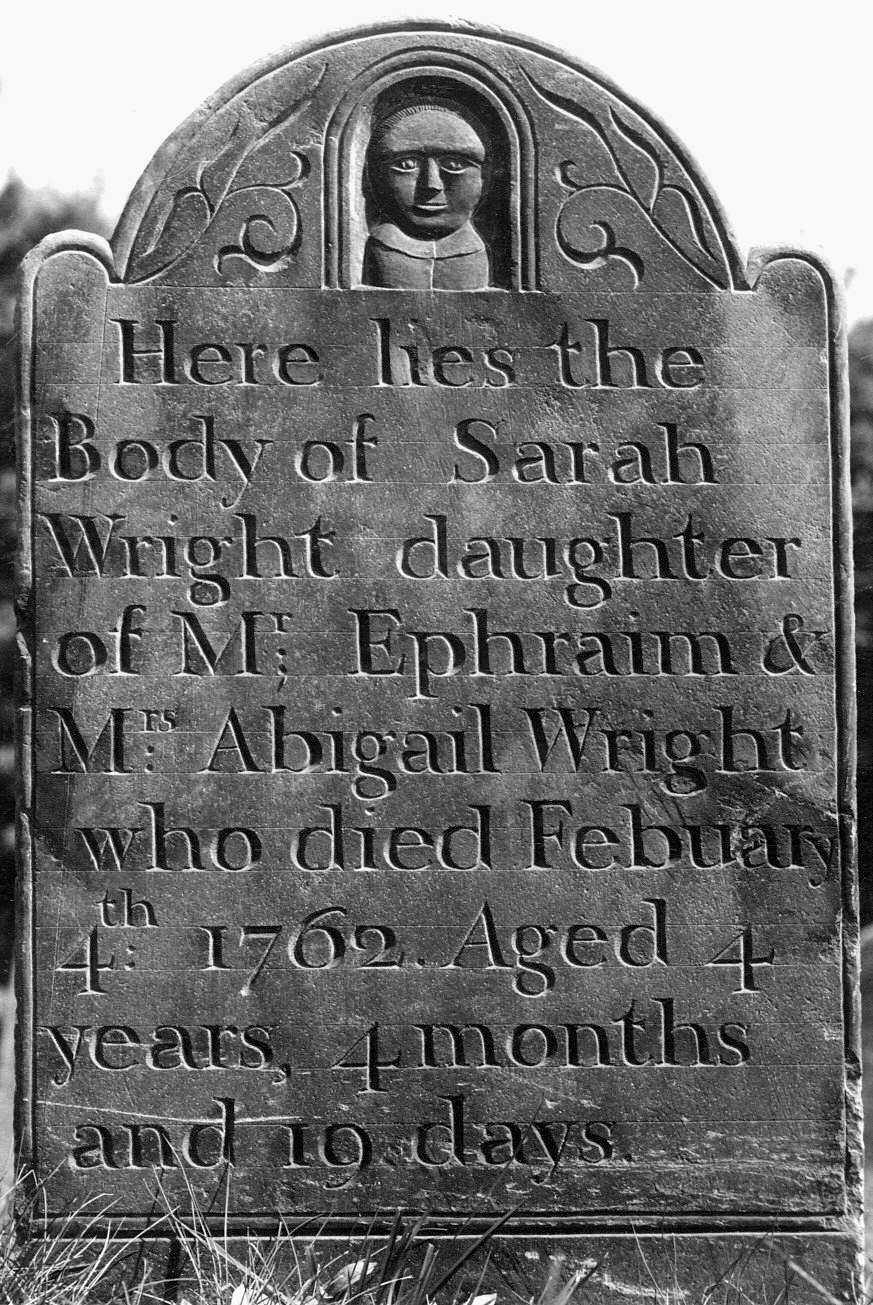 Here lies the
Body of Sarah
Wright daughter
of Mr: Ephraim &
Mrs: Abigail Wright
who died Febuary
4th: 1762. Aged 4
years, 4 months
and 19 days.